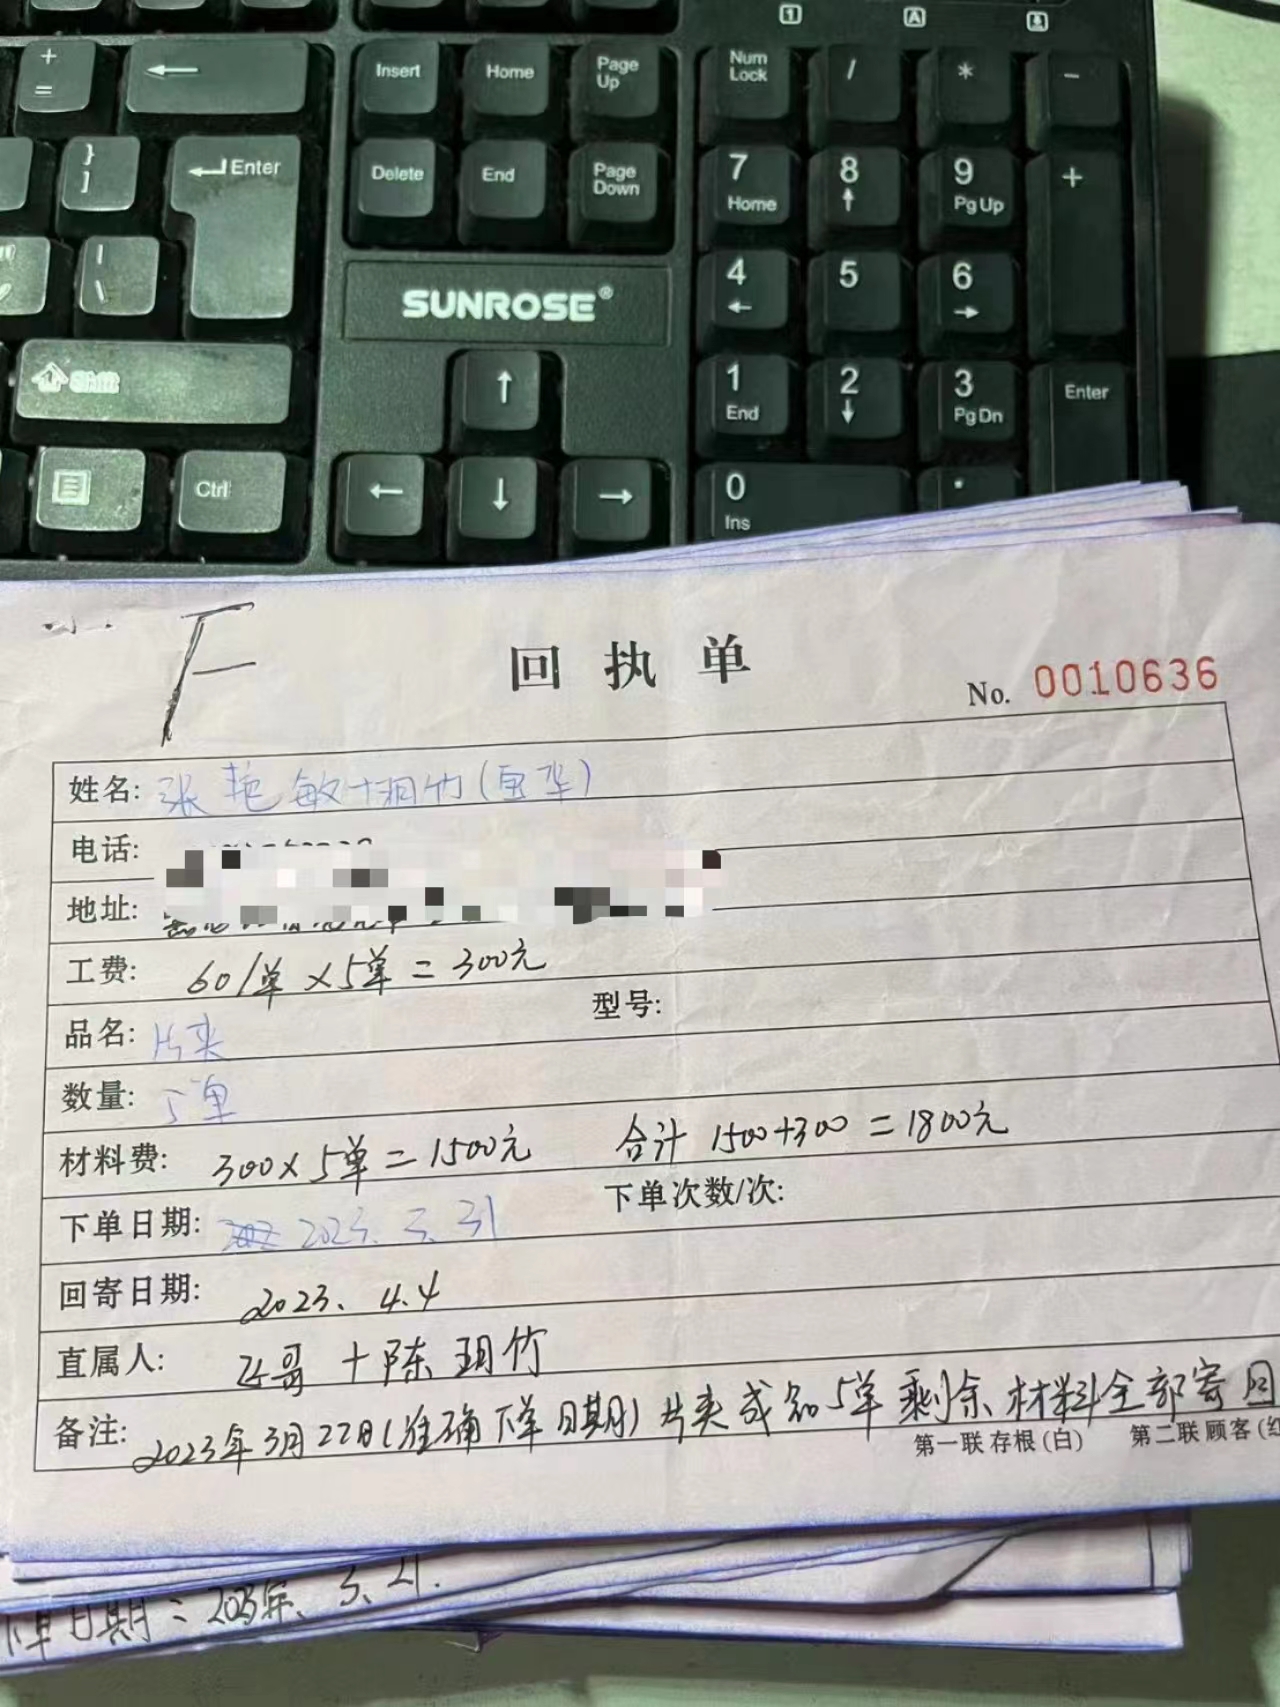 + = ← Insert Home Page Up Num Lock / * -
} ] Enter Delete End Page Down 7 Home 8 ↑ 9 Pg Up +
| \ SUNROSE® 4 ← 5 6 →
Shift ↑ 1 End 2 ↓ 3 Pg Dn Enter
Ctrl ← ↓ → 0 Ins .
F
回执单
No. 0010636
姓名: 张艳敏+
电话:
地址:
工费: 60/单×5单=300元
品名: 片夹 型号:
数量: 5单
材料费: 300×5单=1500元 合计 1500+300=1800元
下单日期: 2023.3.31 下单次数/次:
回寄日期: 2023.4.4
直属人: 飞哥+陈玥竹
备注: 2023年3月22日(准确下单日期)片夹成品5单剩余材料全部寄回
第一联存根(白) 第二联顾客(红
下单日期:2023年.3.21.